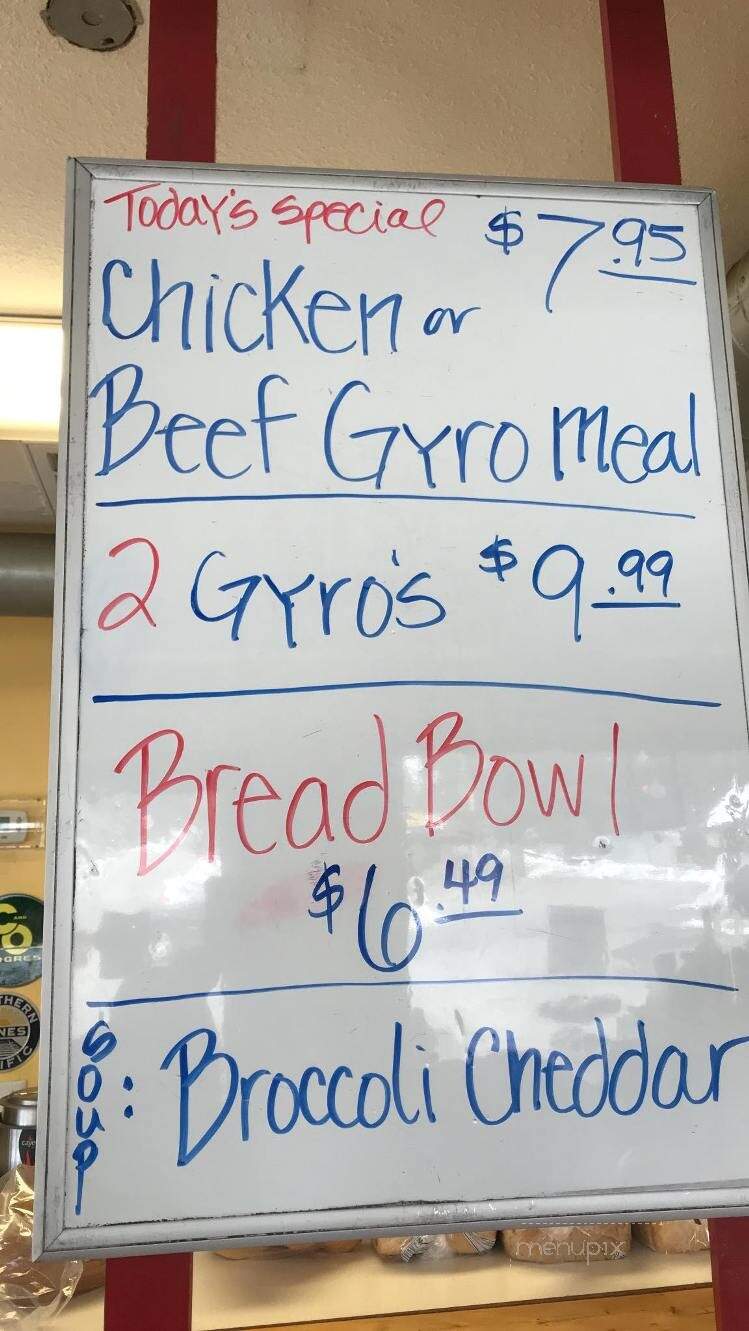 Today's Special $7.95
Chicken or
Beef Gyro Meal
2 Gyro's $9.99
Bread Bowl
$6.49
Soup: Broccoli Cheddar
menupix